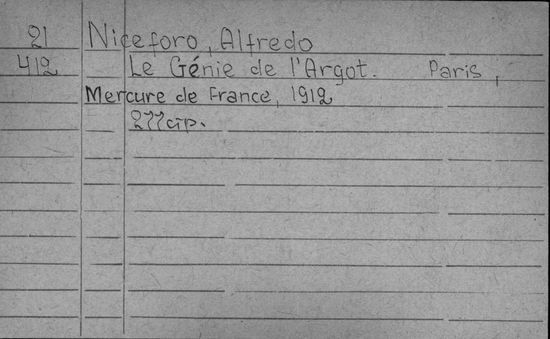 21 Niceforo, Alfredo
412 Le Génie de l'Argot. Paris,
Mercure de France, 1912
277 стр.